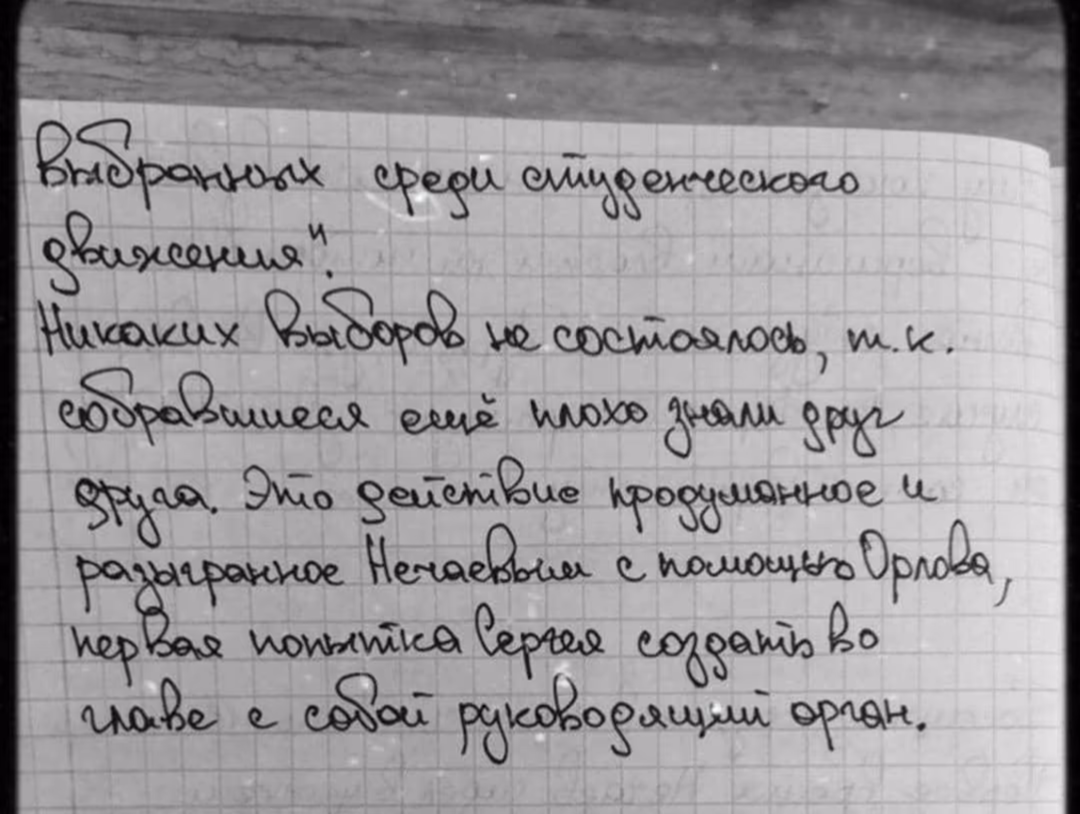 выбранных среди студенческого
движения".
Никаких выборов не состоялось, т.к.
собравшиеся ещё плохо знали друг
друга. Это действие продуманное и
разыгранное Нечаевым с помощью Орлова,
первая попытка Сергея создать во
главе с собой руководящий орган.